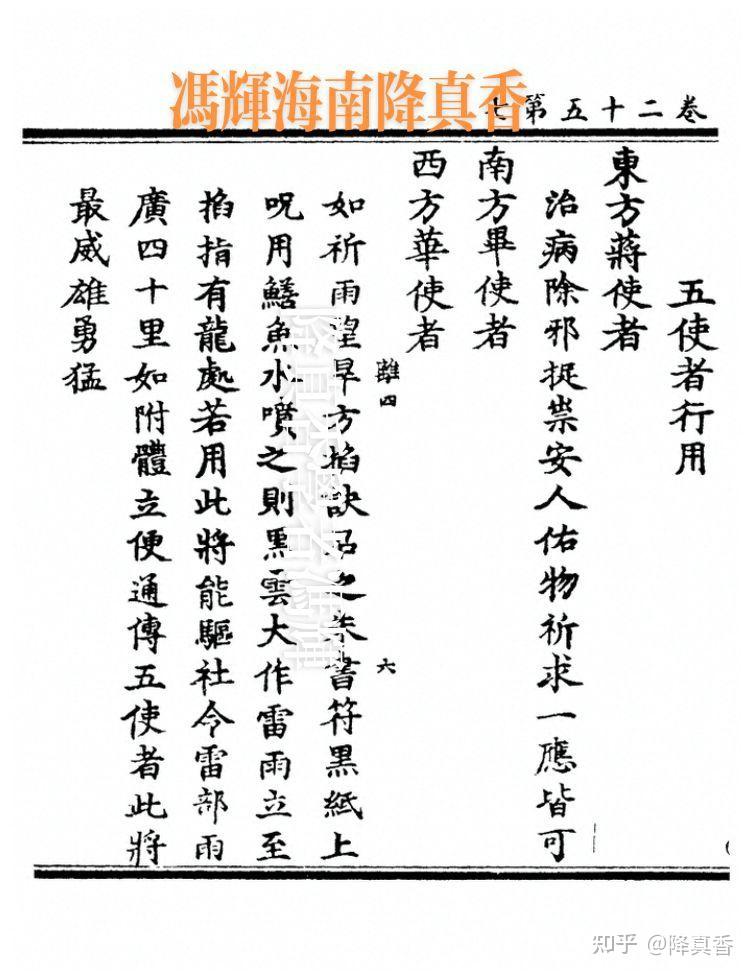 馮輝海南降真香
卷二十五第七
五使者行用
東方蔣使者
治病除邪捉祟安人佑物祈求一應皆可
南方畢使者
西方華使者
離四
六
如祈雨望旱方掐訣召之朱書符黑紙上
呪用鱔魚水噀之則黑雲大作雷雨立至
掐指有龍處若用此將能驅社令雷部雨
廣四十里如附體立便通傳五使者此將
最威雄勇猛
知乎 @降真香